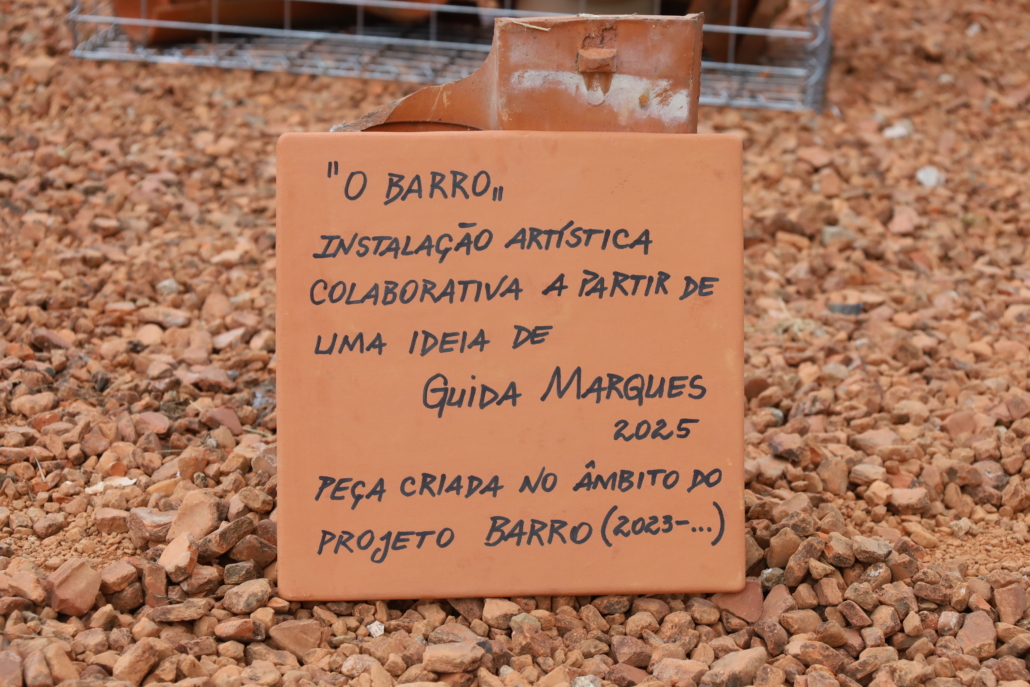 "O BARRO„
INSTALAÇÃO ARTÍSTICA
COLABORATIVA A PARTIR DE
UMA IDEIA DE
GUIDA MARQUES
2025
PEÇA CRIADA NO ÂMBITO DO
PROJETO BARRO (2023-...)